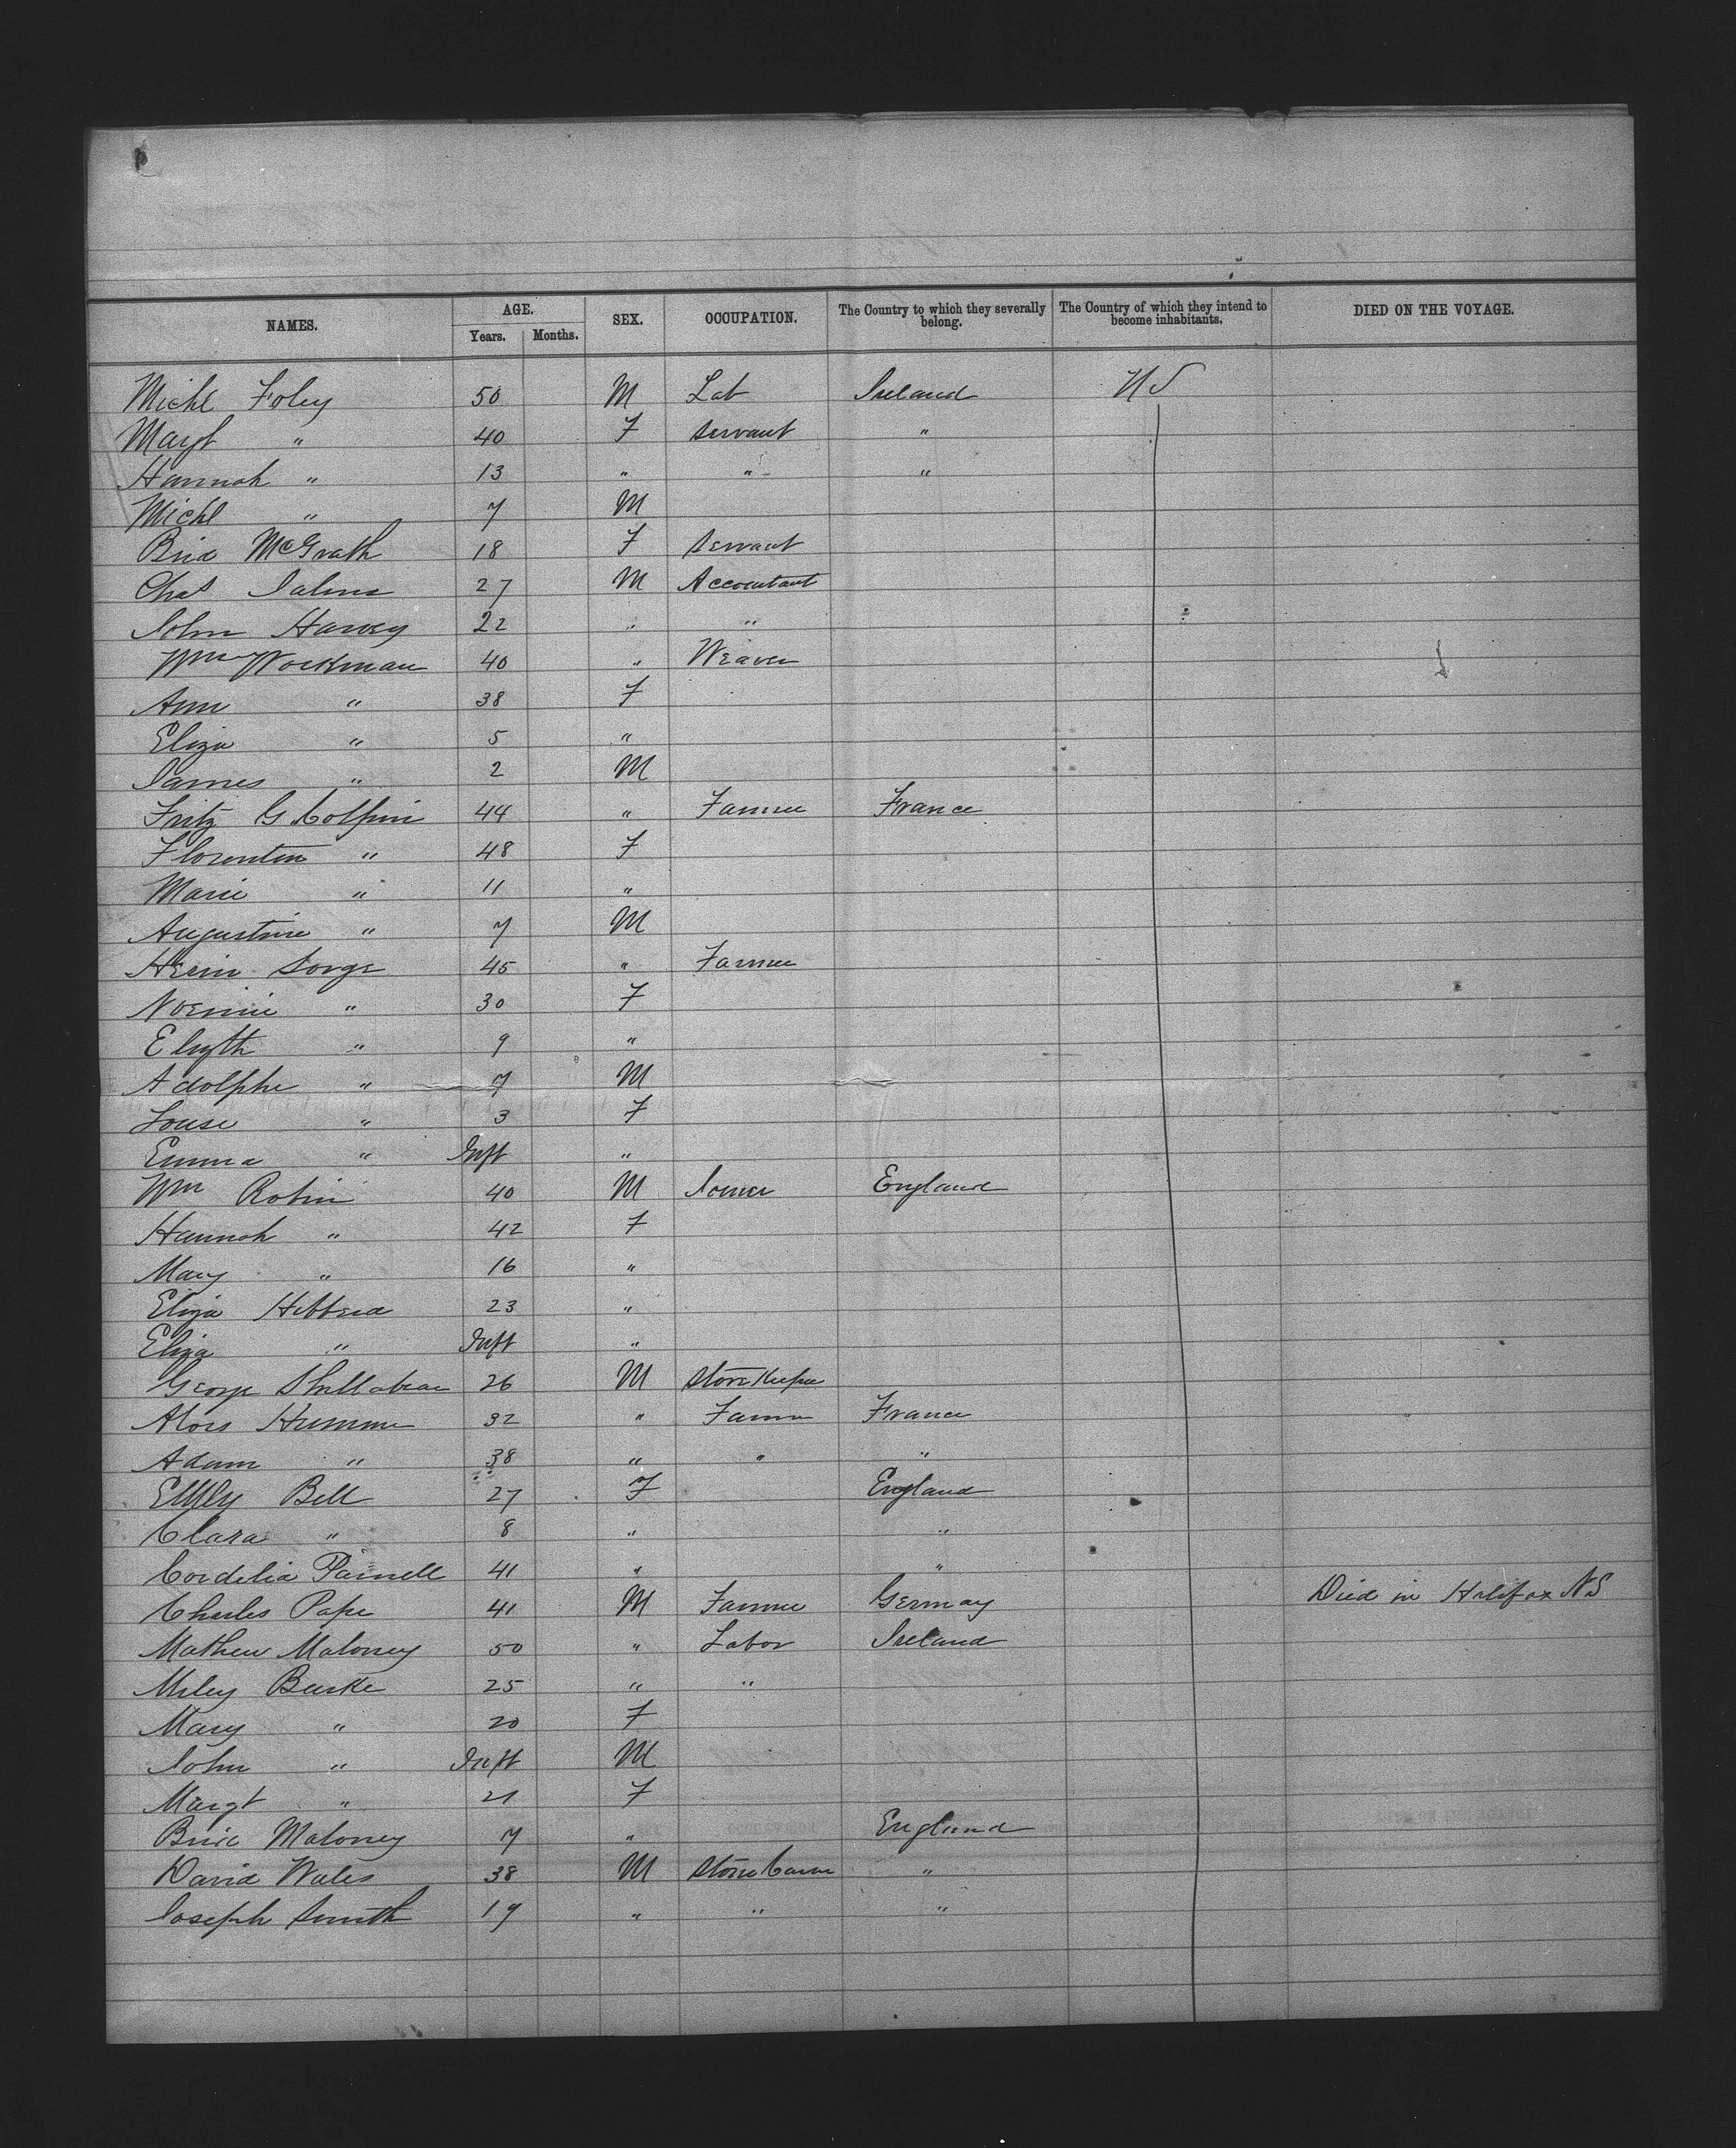 NAMES. AGE. SEX. OCCUPATION. The Country to which they severally belong. The Country of which they intend to become inhabitants. DIED ON THE VOYAGE.
Years. Months.
Michl Foley 50 M Lab Ireland U S
Magt " 40 F Servant "
Hannah " 13 " " "
Michl " 7 M
Brid McGrath 18 F Servant
Chas 27 M Accountant
John Harvey 22 " "
Wm Workman 40 " Weaver
Ann " 38 F
Eliza " 5 "
James " 2 M
Fritz G 44 " Farmer France
Florentin " 48 F
Marie " 11 "
Augustine " 7 M
Sorge 45 " Farmer
Noemie " 30 F
" 9 "
Adolphe " 7 M
Louse " 3 F
Emma " Inft "
Wm Robin 40 M Joiner England
Hannah " 42 F
Mary " 16 "
Eliza Hibberd 23 "
Eliza " Inft "
George 26 M Store Keeper
Alois Humme 32 " Farmer France
Adam " 38 " " "
Bell 27 F England
Clara " 8 " "
Cordelia Parnell 41 " "
Charles Pape 41 M Farmer Germay Died in Halifax N S
Mathew Maloney 50 " Labor Ireland
Miley Burke 25 " "
Mary " 20 F
John " Inft M
Margt " 21 F
Brid Maloney 7 " England
David Wales 38 M "
Joseph Smith 19 " " "